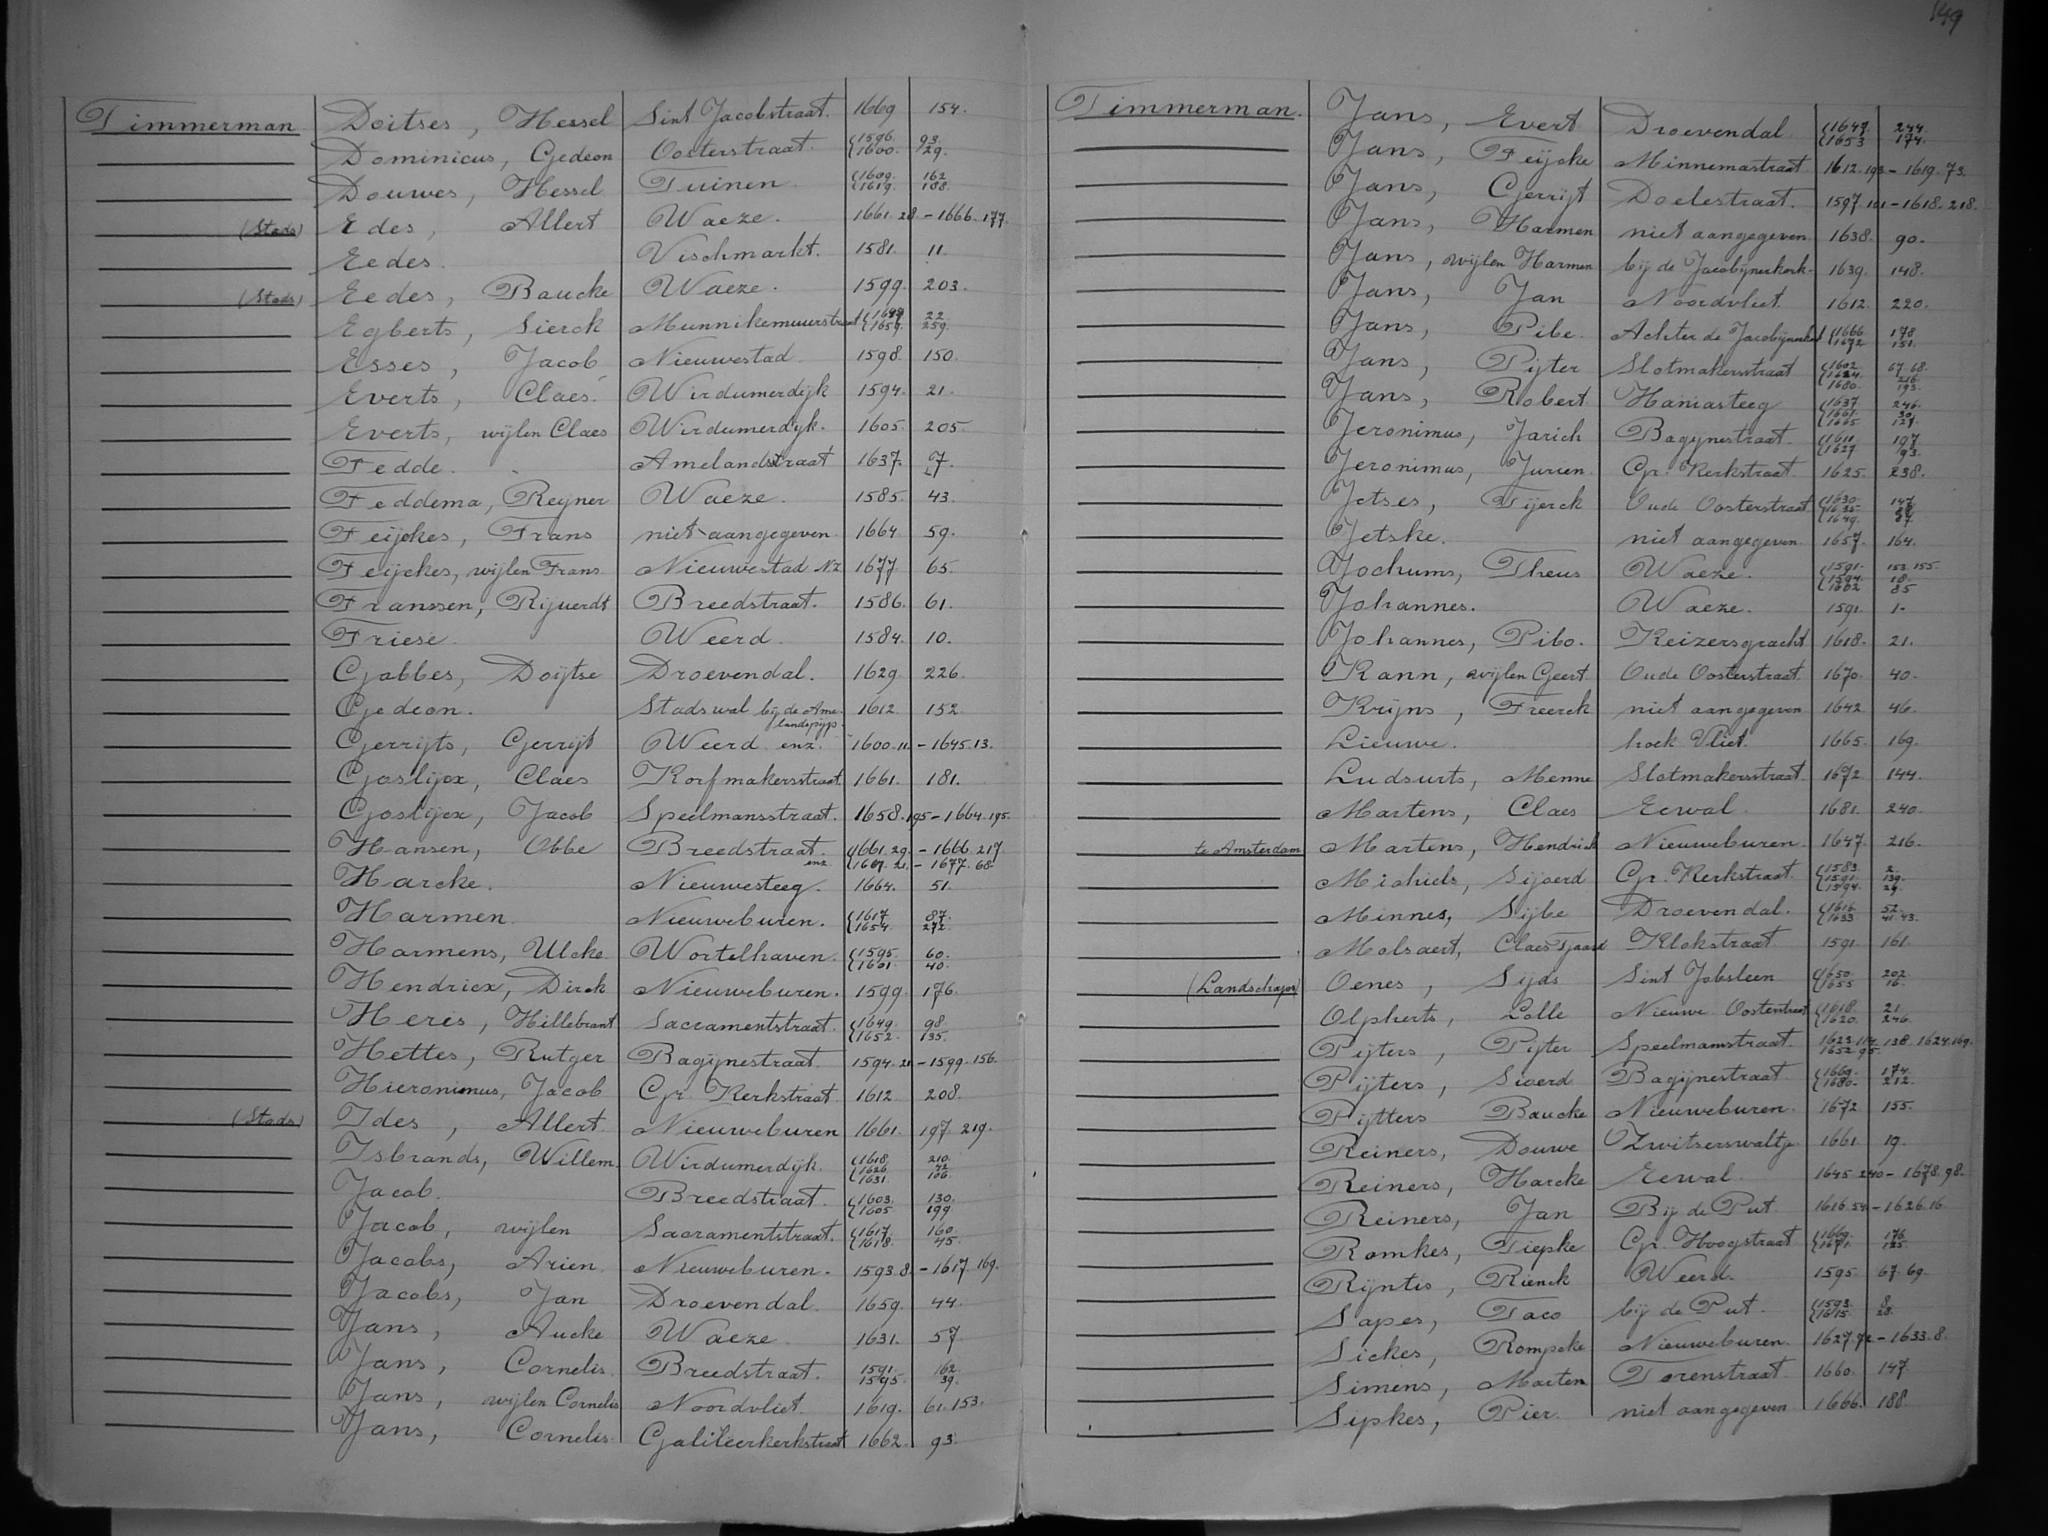 149
Timmerman Doitses, Hessel Sint Jacobstraat. 1669 154.
Dominicus, Gedeon Oosterstraat. 1596. 93. 1600. 29.
Douwes, Hessel Tuinen 1609. 162 1619. 188.
(Stads) Edes, Allert Waeze. 1661. 28. - 1666. 177.
Eedes. Vischmarkt. 1581. 11.
(Stads) Eedes, Baucke Waeze. 1599. 203.
Egberts, Sierck Munnikemuurstraat 22. 1659. 259.
Esses, Jacob Nieuwestad 1598. 150.
Everts, Claes. Wirdumerdijk 1594. 21.
Everts, wijlen Claes Wirdumerdijk. 1605. 205
Fedde. Amelandstraat 1637. 7.
Feddema, Reyner Waeze. 1585. 43.
Feijckes, Frans niet aangegeven 1664 59.
Feijckes, wijlen Frans Nieuwestad NZ 1677. 65.
Franssen, Rijuerdt Breedstraat. 1586. 61.
Friese. Weerd. 1584. 10.
Gabbes, Doijtse Droevendal. 1629. 226.
Gedeon. Stadswal bij de Ame- 1612. 152.
landspijp.
Gerrijts, Gerrijt Weerd enz. 1600. 11. - 1645. 13.
Goslijcx, Claes Korfmakersstraat 1661. 181.
Goslijcx, Jacob Speelmansstraat. 1658. 195 - 1664. 195.
Hansen, Obbe Breedstraat. 1661. 29. - 1666. 217
enz 21. - 1677. 68.
Harcke. Nieuwesteeg. 1664. 51.
Harmen Nieuweburen. 1617. 87. 1654. 272.
Harmens, Ulcke Wortelhaven. 1595. 60. 1601. 40.
Hendricx, Dirck Nieuweburen. 1599. 176.
Heres, Hillebrant Sacramentstraat. 1649. 98 1652. 135.
Hettes, Rutger Bagijnestraat. 1594. 21 - 1599. 156.
Hieronimus, Jacob Gr. Kerkstraat 1612 208.
(Stads) Ides, Allert. Nieuweburen 1661. 197. 219.
Isbrands, Willem. Wirdumerdijk. 1618. 210. 1626. 42 1631. 106.
Jacob. Breedstraat. 1603. 130. 1605 199.
Jacob, wijlen Sacramentstraat. 1617. 160. 1618. 45.
Jacobs, Arien. Nieuweburen. 1593. 8. - 1617. 169.
Jacobs, Jan Droevendal. 1659. 44.
Jans, Aucke Waeze. 1631. 57
Jans, Cornelis. Breedstraat. 1591. 162. 1595. 39.
Jans, wijlen Cornelis Noordvliet. 1619. 61. 153.
Jans, Cornelis. Galileerkerkstraat 1662. 93.
Timmerman. Jans, Evert Droevendal 1647. 244. 1653 174.
Jans, Feijcke Minnemastraat 1612. 193 - 1619. 73.
Jans, Gerrijt Doelestraat. 1597. 101 - 1618. 218.
Jans, Harmen niet aangegeven. 1638. 90.
Jans, wijlen Harmen bij de Jacobijnerkerk. 1639. 148.
Jans, Jan Noordvliet. 1612. 220.
Jans, Pibe. Achter de Jacobijnerkerk 1666. 178 1672 151.
Jans, Pijter Slotmakersstraat 1602 67. 68. 1624. 216. 1680. 193.
Jans, Robert Haniasteeg 1637 246. 1661. 30. 1665 127.
Jeronimus, Jarich Bagijnestraat. 1611 197 1627 93.
Jeronimus, Jurien. Gr. Kerkstraat 1625. 238.
Jetses, Tijerck Oude Oosterstraat 1630. 147. 1649. 87.
Jetske. niet aangegeven. 1657. 164.
Jochums, Theus Waeze. 1591. 153. 155. 1594. 18. 1602 85
Johannes. Waeze. 1591. 1.
Johannes, Pibo. Keizersgracht 1618. 21.
Kann, wijlen Geert Oude Oosterstraat. 1670. 40.
Krijns, Freerck niet aangegeven 1642 46.
Lieuwe. hoek Vliet. 1665. 169.
Ludsurts, Menne Slotmakersstraat. 1672 144.
Martens, Claes Eewal. 1681. 240.
te Amsterdam Martens, Hendrick Nieuweburen. 1647. 216.
Michiels, Sijoerd Gr. Kerkstraat. 1583. 2. 1591. 139. 1594. 29.
Minnes, Sijbe Droevendal. 1616. 52. 1633. 41. 43.
Molsaert, Claes Tjaard Klokstraat 1591 161.
(Landschaps) Oenes, Sijds Sint Jobsleen 1650. 202. 1655 16.
Olpherts, Lolle Nieuwe Oosterstraat 1618. 21. 1620. 246.
Pijters, Pijter Speelmanstraat. 1623. 114. 138. 1624. 169. 1652. 95.
Pijters, Sioerd Bagijnestraat 1669. 174. 1680. 212.
Pijtters Baucke Nieuweburen. 1672 155.
Reiners, Douwe Zwitserswaltje. 1661. 19.
Reiners, Harcke Eewal. 1645 240 - 1678. 98.
Reiners, Jan Bij de Put. 1616. 54 - 1626. 16
Romkes, Tiepke Gr. Hoogstraat 1669. 176. 1671. 125.
Rijntis, Rienck Weerd. 1595. 67. 69.
Sapes, Taco bij de Put. 1593. 8. 1615. 28.
Sickes, Rompcke Nieuweburen. 1627. 72 - 1633. 8.
Simens, Marten Torenstraat 1660. 147
Sipkes, Pier. niet aangegeven 1666. 188.